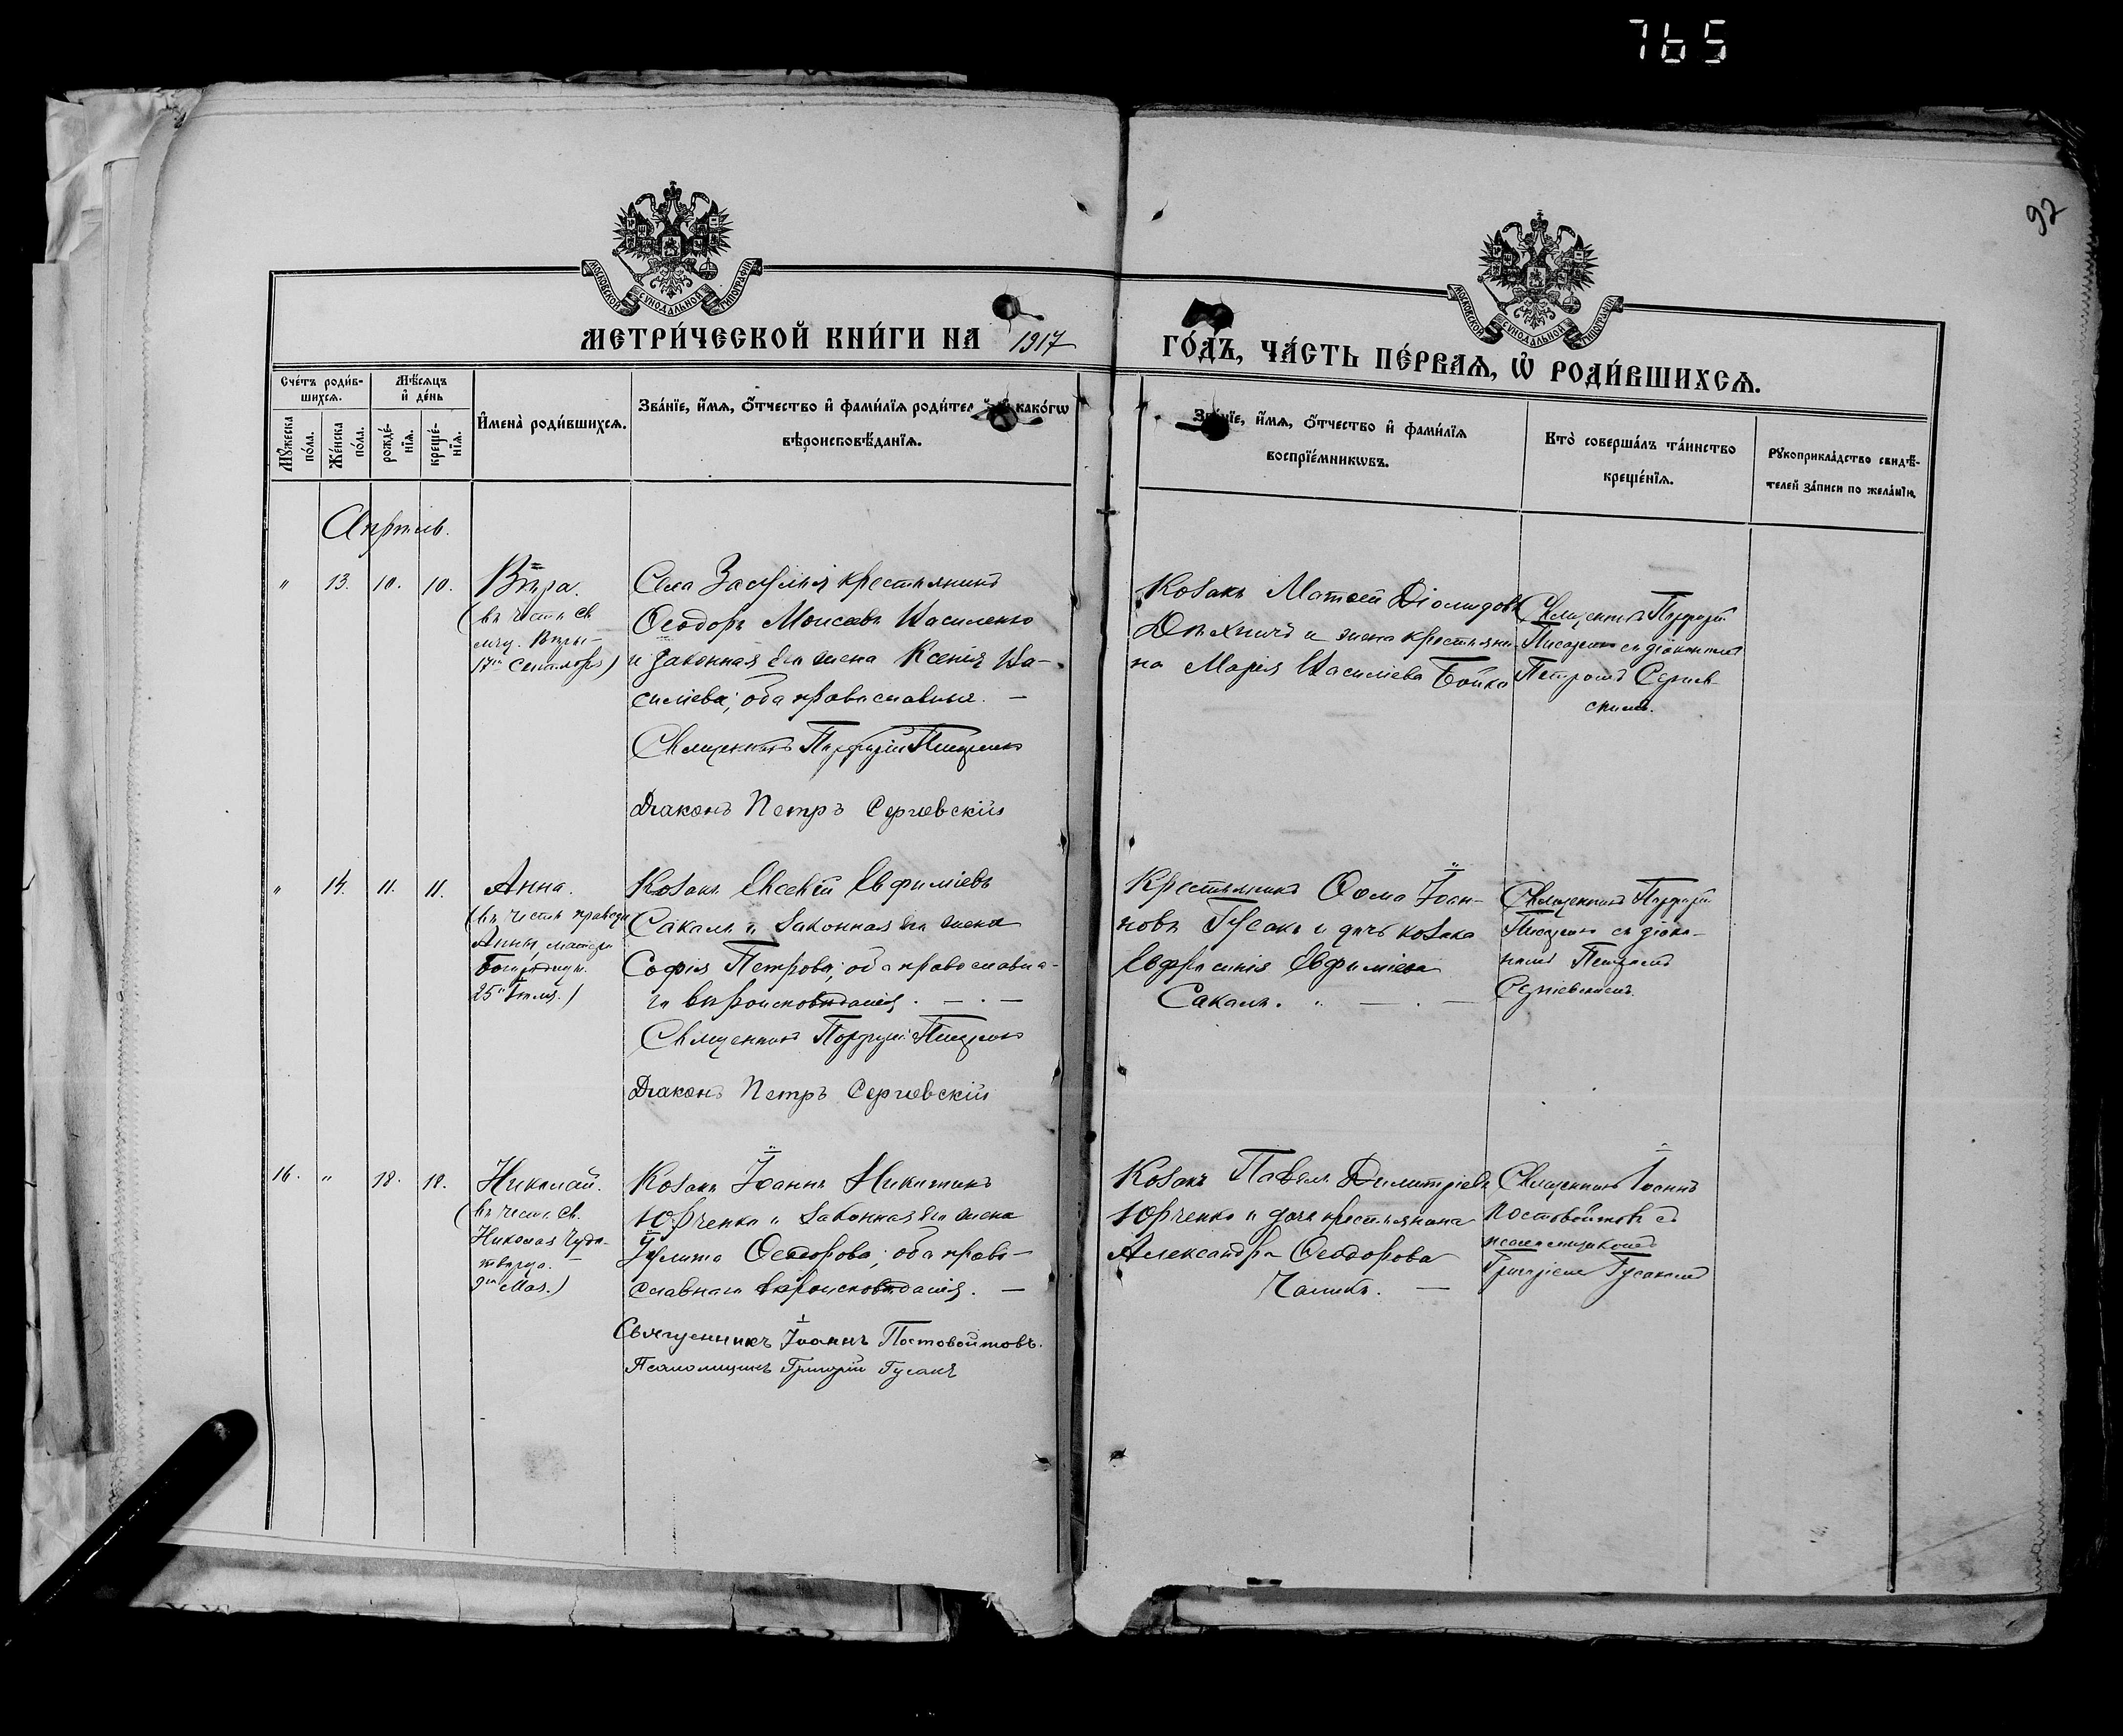 765
92
МОСКОВСКОЙ СѴНОДАЛЬНОЙ ТИПОГРАФІИ
МОСКОВСКОЙ СѴНОДАЛЬНОЙ ТИПОГРАФІИ
МЕТРИ́ЧЕСКОЙ КНИ́ГИ НА 1917
ГО́ДЪ, ЧА́СТЬ ПЕ́РВАѦ, Ѽ РОДИ́ВШИХСѦ.
Сче́тъ роди́в-
шихсѧ.
Мꙋ́жеска
по́ла.
Же́нска
по́ла.
Мѣ́сѧцъ
и҆ де́нь
рожде́-
нїѧ.
креще́-
нїѧ.
И҆мена̀ роди́вшихсѧ.
Зва́нїе, и҆́мѧ, ѻ҆́тчество и҆ фами́лїѧ роди́тел како́гѡ
вѣроисповѣ́данїѧ.
Зва́нїе, и҆́мѧ, ѻ҆́тчество и҆ фами́лїѧ
воспрїе́мникѡвъ.
Кто̀ соверша́лъ та́инство
креще́нїѧ.
Рꙋкоприкла́дство свидѣ́-
телей за́писи по жела́нїю.
Апрѣль.
" 13. 10. 10. Вѣра.
(въ честь св.
муч. Вѣры
17го Сентября)
Села крестьянинъ
Ѳеодоръ Моисеевъ Василенко
и законная его жена Ксенія Ва-
силіева; оба православные. —
Священникъ Порфирій
Діаконъ Петръ Сергіевскій
Козакъ Матѳей Діомидовъ
и жена крестьяни-
на Марія Василіева Бойко
Священникъ Порфирій
съ діакономъ
Петромъ Сергіев-
скимъ.
" 14. 11. 11. Анна.
(въ честь праведн.
Анны, матери
Богородицы.
25го Іюля.)
Козакъ Евсевій Евфиміевъ
Сакалъ и законная его жена
Софія Петрова; оба православна-
го вѣроисповѣданія. — . —
Священникъ Порфирій
Діаконъ Петръ Сергіевскій
Крестьянинъ Ѳома Іоан-
новъ Гусакъ и дочь козака
Евфросинія Евфиміева
Сакалъ. " — . —
Священникъ Порфирій
съ діако-
номъ Петромъ
Сергіевскимъ.
16. " 18. 18. Николай.
(въ честь св.
Николая Чудо-
творца. —
9го Мая.)
Козакъ Іоаннъ Никитинъ
Юрченко и законная его жена
Іулита Ѳеодорова; оба право-
славнаго вѣроисповѣданія. —
Священникъ Іоаннъ Постовойтовъ.
Псаломщикъ Григорій Гусакъ
Козакъ Павелъ Димитріевъ
Юрченко и дочь крестьянина
Александра Ѳеодорова
—
Священникъ Іоаннъ
Постовойтовъ съ
псаломщикомъ
Григоріемъ Гусакомъ